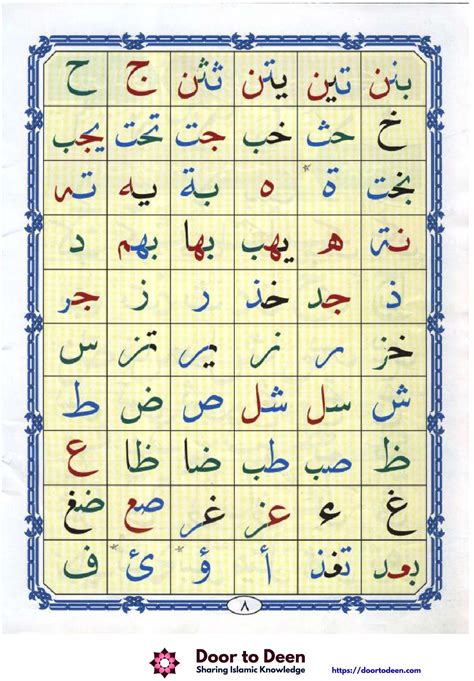 بنن تين يتن ثثن ج ح
خ حث خب جت تحت يجب
بخت ة ه بة يه ته
نة ه يهب بها بهم د
ذ جد خذ ر ز جر
خز ر نر ير تز س
ش سل شل ص ض ط
ظ صب طب ضا ظا ع
غ ء عز غر صع ضغ
بعد تغذ أ ؤ ئ ف
٨
Door to Deen
Sharing Islamic Knowledge
https://doortodeen.com